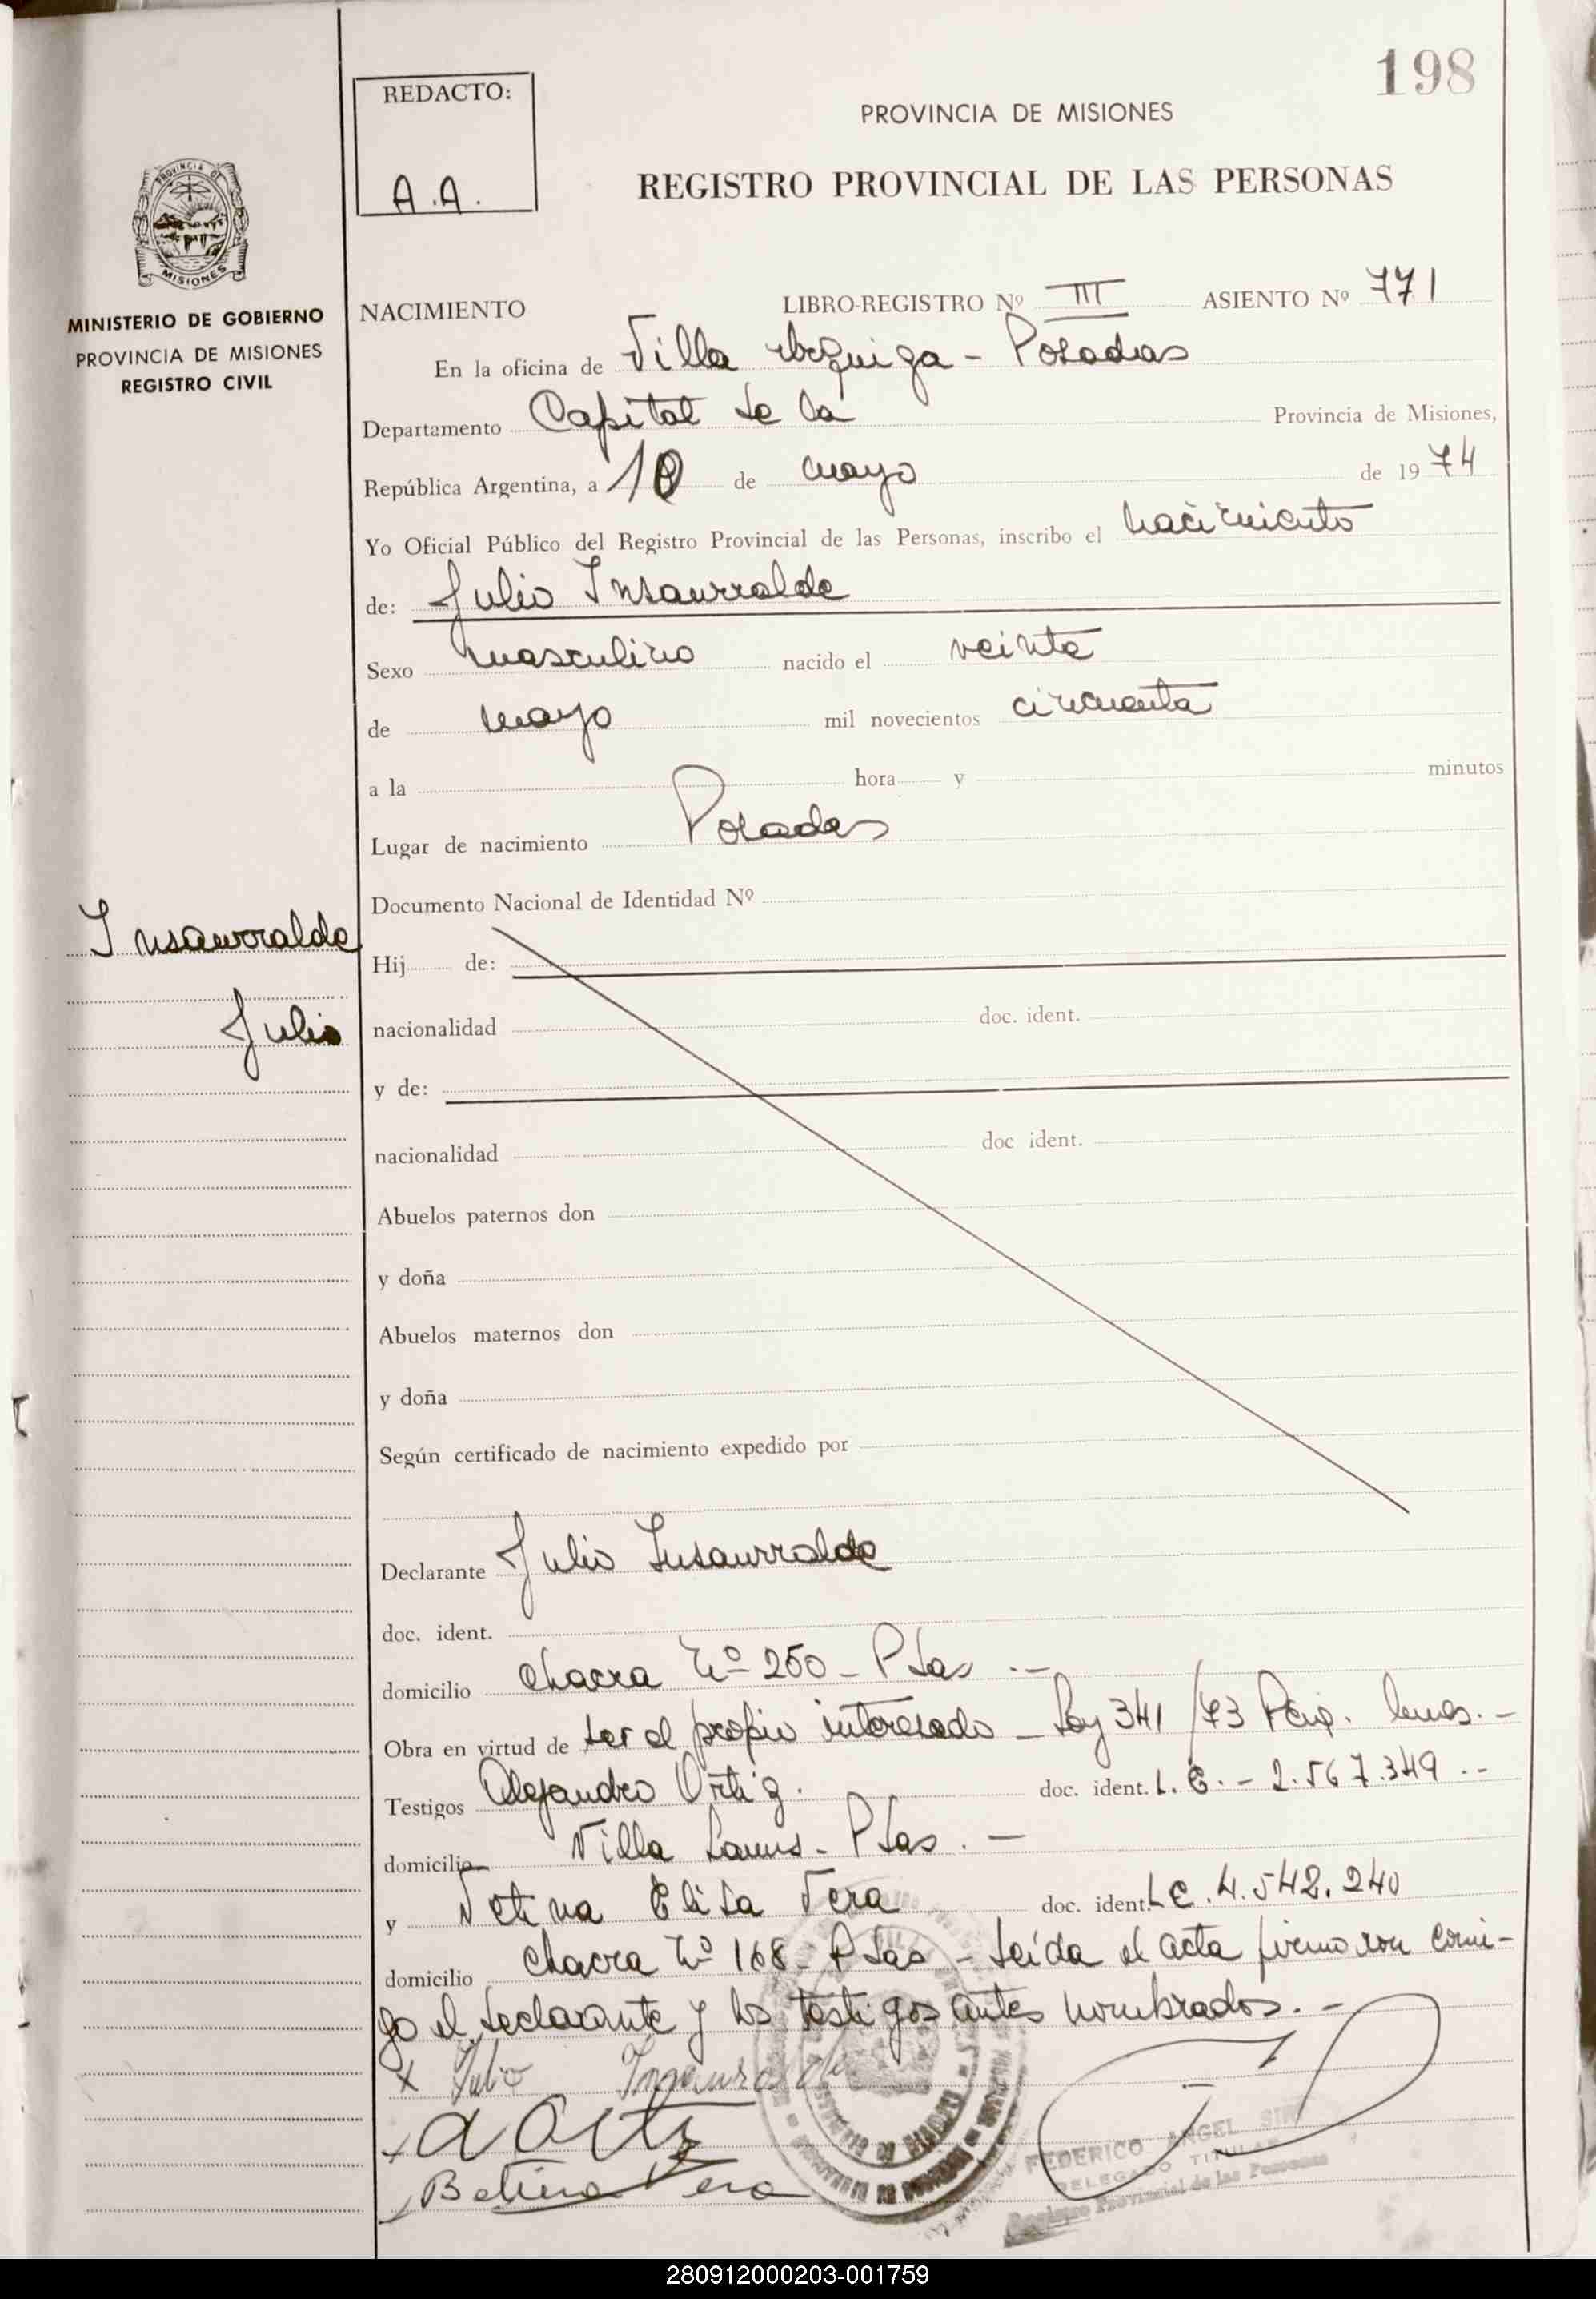 198
REDACTO:
A.A.
PROVINCIA DE MISIONES
REGISTRO PROVINCIAL DE LAS PERSONAS
PROVINCIA DE
MISIONES
MINISTERIO DE GOBIERNO
PROVINCIA DE MISIONES
REGISTRO CIVIL
NACIMIENTO LIBRO-REGISTRO Nº III ASIENTO Nº 771
En la oficina de Villa Urquiza - Posadas
Departamento Capital de la Provincia de Misiones,
República Argentina, a 10 de mayo de 1974
Yo Oficial Público del Registro Provincial de las Personas, inscribo el nacimiento
de: Julio Insaurralde
Sexo masculino nacido el veinte
de mayo mil novecientos cincuenta
a la hora y minutos
Lugar de nacimiento Posadas
Documento Nacional de Identidad Nº
Insaurralde
Julio
Hij de:
nacionalidad doc. ident.
y de:
nacionalidad doc ident.
Abuelos paternos don
y doña
Abuelos maternos don
y doña
Según certificado de nacimiento expedido por
Declarante Julio Insaurralde
doc. ident.
domicilio chacra Nº 250 - Pdas .-
Obra en virtud de ser el propio interesado - Ley 341/73
Testigos Alejandro Ortiz. doc. ident. L.E. - 2.567.349 .-
domicilio Villa Lanus - Pdas. -
y Betina Elisa Vera doc. ident. L.C. 4.542.240
domicilio chacra Nº 168 - Pdas - Leída el acta firmaron conmi-
go el declarante y los testigos antes nombrados. -
x Julio Insaurralde
x A Ortiz
Betina Vera
FEDERICO ANGEL
DELEGADO TITULAR
Registro Provincial de las Personas
280912000203-001759